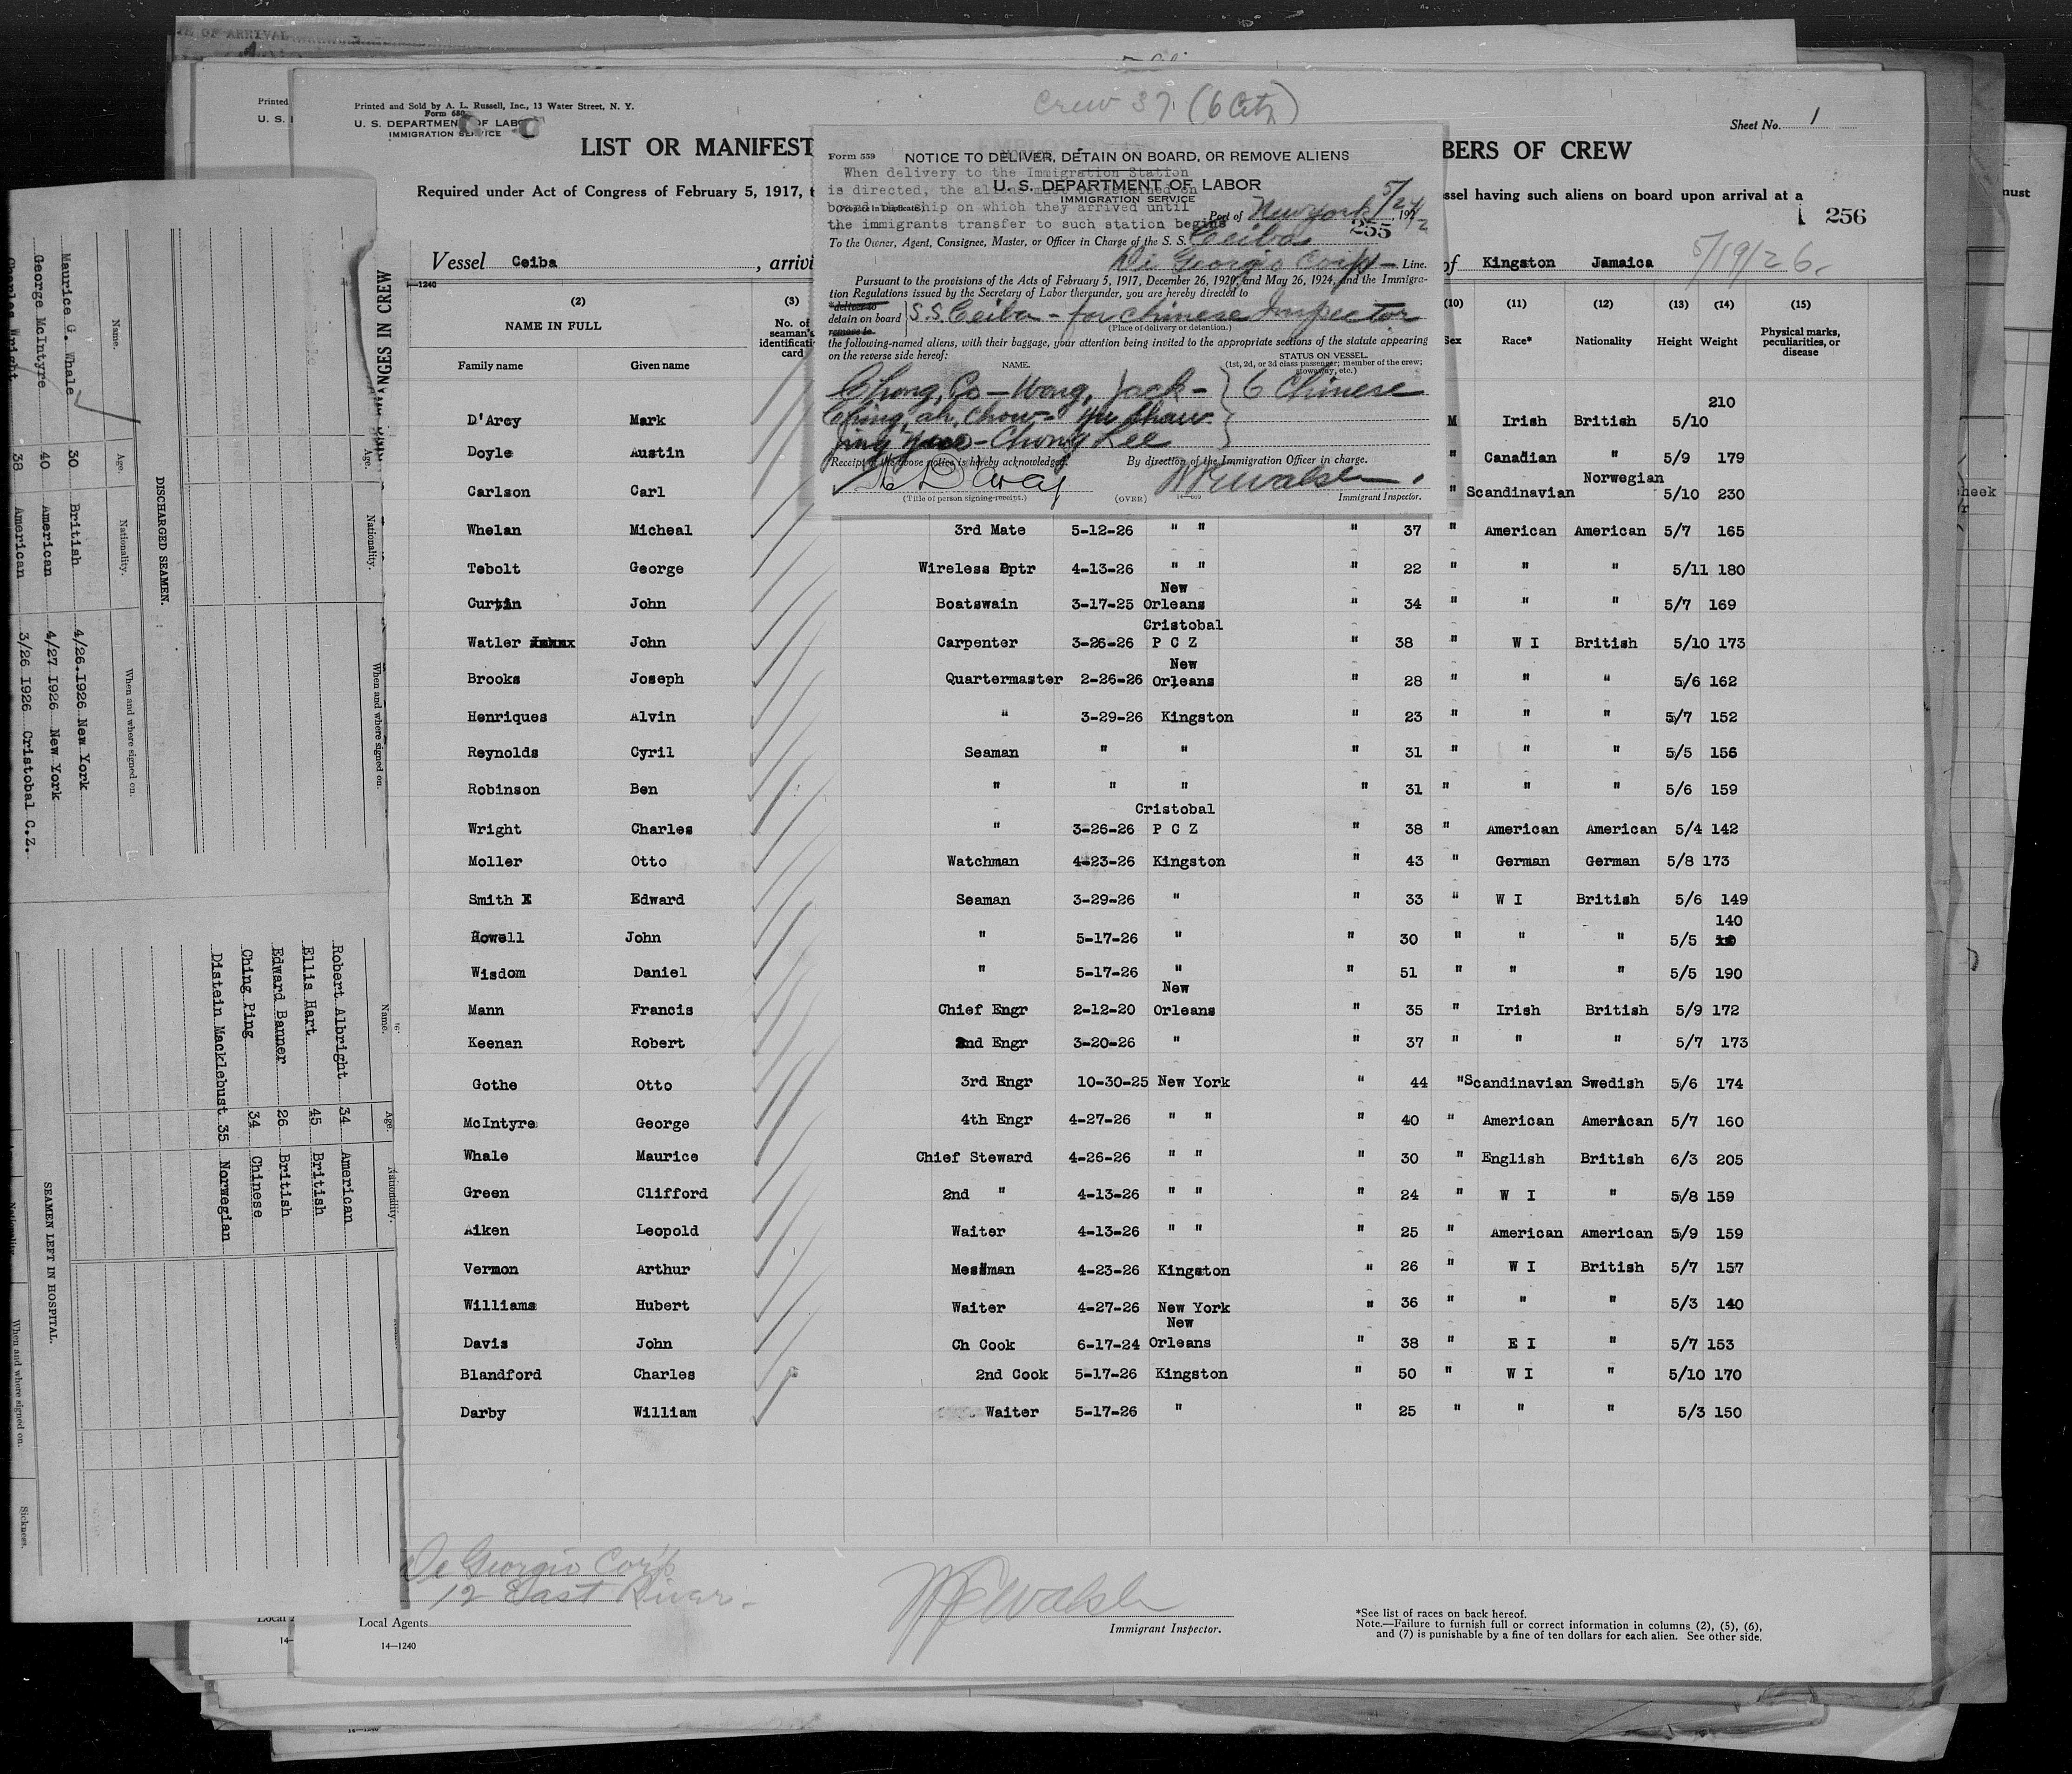 OF ARRIVAL
Printed
U. S.
Printed and Sold by A. L. Russell, Inc., 13 Water Street, N. Y.
Form 680
U. S. DEPARTMENT OF LABOR
IMMIGRATION SERVICE
Crew 37 (6 Citz)
Sheet No. 1
LIST OR MANIFEST
BERS OF CREW
Required under Act of Congress of February 5, 1917,
ssel having such aliens on board upon arrival at a
256
Vessel Ceiba , arrivi
of Kingston Jamaica 5/19/26.
Form 539
NOTICE TO DELIVER, DETAIN ON BOARD, OR REMOVE ALIENS
When delivery to the Immigration Station
is directed, the aliens must be detained on
board the ship on which they arrived until
the immigrants transfer to such station begins
U. S. DEPARTMENT OF LABOR
IMMIGRATION SERVICE
Port of New York 5/24 192
255
To the Owner, Agent, Consignee, Master, or Officer in Charge of the S. S. Ceiba
Di Georgio Corp — Line.
Pursuant to the provisions of the Acts of February 5, 1917, December 26, 1920, and May 26, 1924, and the Immigra-
tion Regulations issued by the Secretary of Labor thereunder, you are hereby directed to
deliver to
detain on board S.S. Ceiba - for Chinese Inspector
remove to
(Place of delivery or detention.)
the following-named aliens, with their baggage, your attention being invited to the appropriate sections of the statute appearing
on the reverse side hereof:
NAME.
STATUS ON VESSEL
(1st, 2d, or 3d class passenger; member of the crew; stowaway, etc.)
Chong, Co — Wong, Jack - 6 Chinese
Ching, ah, Chow - Yu Chaw
Jing Yuee - Chong Lee
Receipt of the above notice is hereby acknowledged.
By direction of the Immigration Officer in charge.
(Title of person signing receipt.)
(OVER)
Immigrant Inspector.
(2) (3) (10) (11) (12) (13) (14) (15)
NAME IN FULL
Family name Given name
No. of seaman's identificati card
Sex Race* Nationality Height Weight Physical marks, peculiarities, or disease
D'Arcy Mark M Irish British 5/10 210
Doyle Austin " Canadian " 5/9 179
Carlson Carl " Scandinavian Norwegian 5/10 230
Whelan Micheal 3rd Mate 5-12-26 " " " 37 " American American 5/7 165
Tebolt George Wireless Optr 4-13-26 " " " 22 " " " 5/11 180
Curtin John Boatswain 3-17-25 New Orleans " 34 " " " 5/7 169
Watler John Carpenter 3-26-26 Cristobal P C Z " 38 " W I British 5/10 173
Brooks Joseph Quartermaster 2-26-26 New Orleans " 28 " " " 5/6 162
Henriques Alvin " 3-29-26 Kingston " 23 " " " 5/7 152
Reynolds Cyril Seaman " " " 31 " " " 5/5 156
Robinson Ben " " " " 31 " " " 5/6 159
Wright Charles " 3-26-26 Cristobal P C Z " 38 " American American 5/4 142
Moller Otto Watchman 4-23-26 Kingston " 43 " German German 5/8 173
Smith Edward Seaman 3-29-26 " " 33 " W I British 5/6 149
Howell John " 5-17-26 " " 30 " " " 5/5 140
Wisdom Daniel " 5-17-26 " " 51 " " " 5/5 190
Mann Francis Chief Engr 2-12-20 New Orleans " 35 " Irish British 5/9 172
Keenan Robert 2nd Engr 3-20-26 " " 37 " " " 5/7 173
Gothe Otto 3rd Engr 10-30-25 New York " 44 " Scandinavian Swedish 5/6 174
McIntyre George 4th Engr 4-27-26 " " " 40 " American American 5/7 160
Whale Maurice Chief Steward 4-26-26 " " " 30 " English British 6/3 205
Green Clifford 2nd " 4-13-26 " " " 24 " W I " 5/8 159
Aiken Leopold Waiter 4-13-26 " " " 25 " American American 5/9 159
Vermon Arthur Messman 4-23-26 Kingston " 26 " W I British 5/7 157
Williams Hubert Waiter 4-27-26 New York " 36 " " " 5/3 140
Davis John Ch Cook 6-17-24 New Orleans " 38 " E I " 5/7 153
Blandford Charles 2nd Cook 5-17-26 Kingston " 50 " W I " 5/10 170
Darby William Waiter 5-17-26 " " 25 " " " 5/3 150
De Georgio Corp
12 East River
Local Agents
14—1240
W E Walsh
Immigrant Inspector.
*See list of races on back hereof.
Note.—Failure to furnish full or correct information in columns (2), (5), (6),
and (7) is punishable by a fine of ten dollars for each alien. See other side.
ANGES IN CREW
Name. Age. Nationality. When and where signed on.
DISCHARGED SEAMEN.
Name. Age. Nationality. When and where signed on.
Maurice G. Whale 30 British 4/26.1926 New York
George McIntyre 40 American 4/27 1926 New York
Charles Wright 38 American 3/26 1926 Cristobal C.Z.
Name. Age. Nationality.
Robert Albright 34 American
Ellis Hart 45 British
Edward Banner 26 British
Ching Ping 34 Chinese
Distein Macklebust 35 Norwegian
SEAMEN LEFT IN HOSPITAL.
Nationality. When and where signed on. Sickness.
must
heek